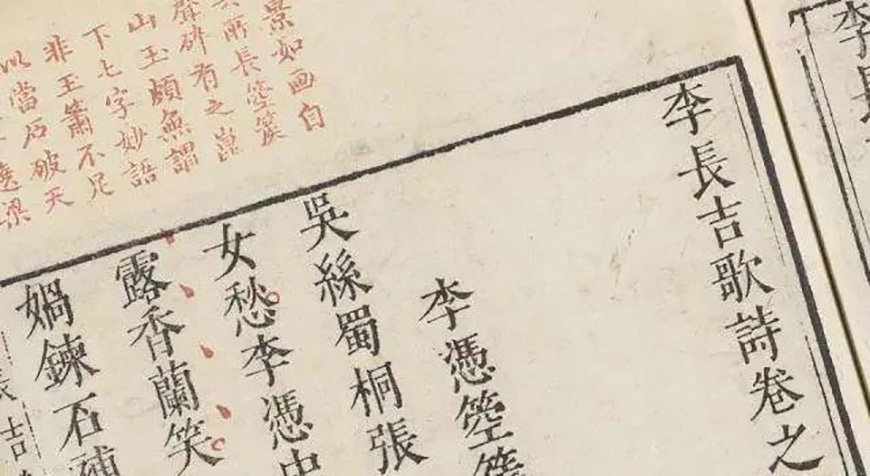 李長
李長吉歌詩卷之
李憑箜篌
吳絲蜀桐張
女愁李憑中
露香蘭笑
媧鍊石補
長吉
景如画自
其所長箜篌
聲碎有之崑
山玉頗無謂
下七字妙語
非玉簫不足
以當石破天
遶梁